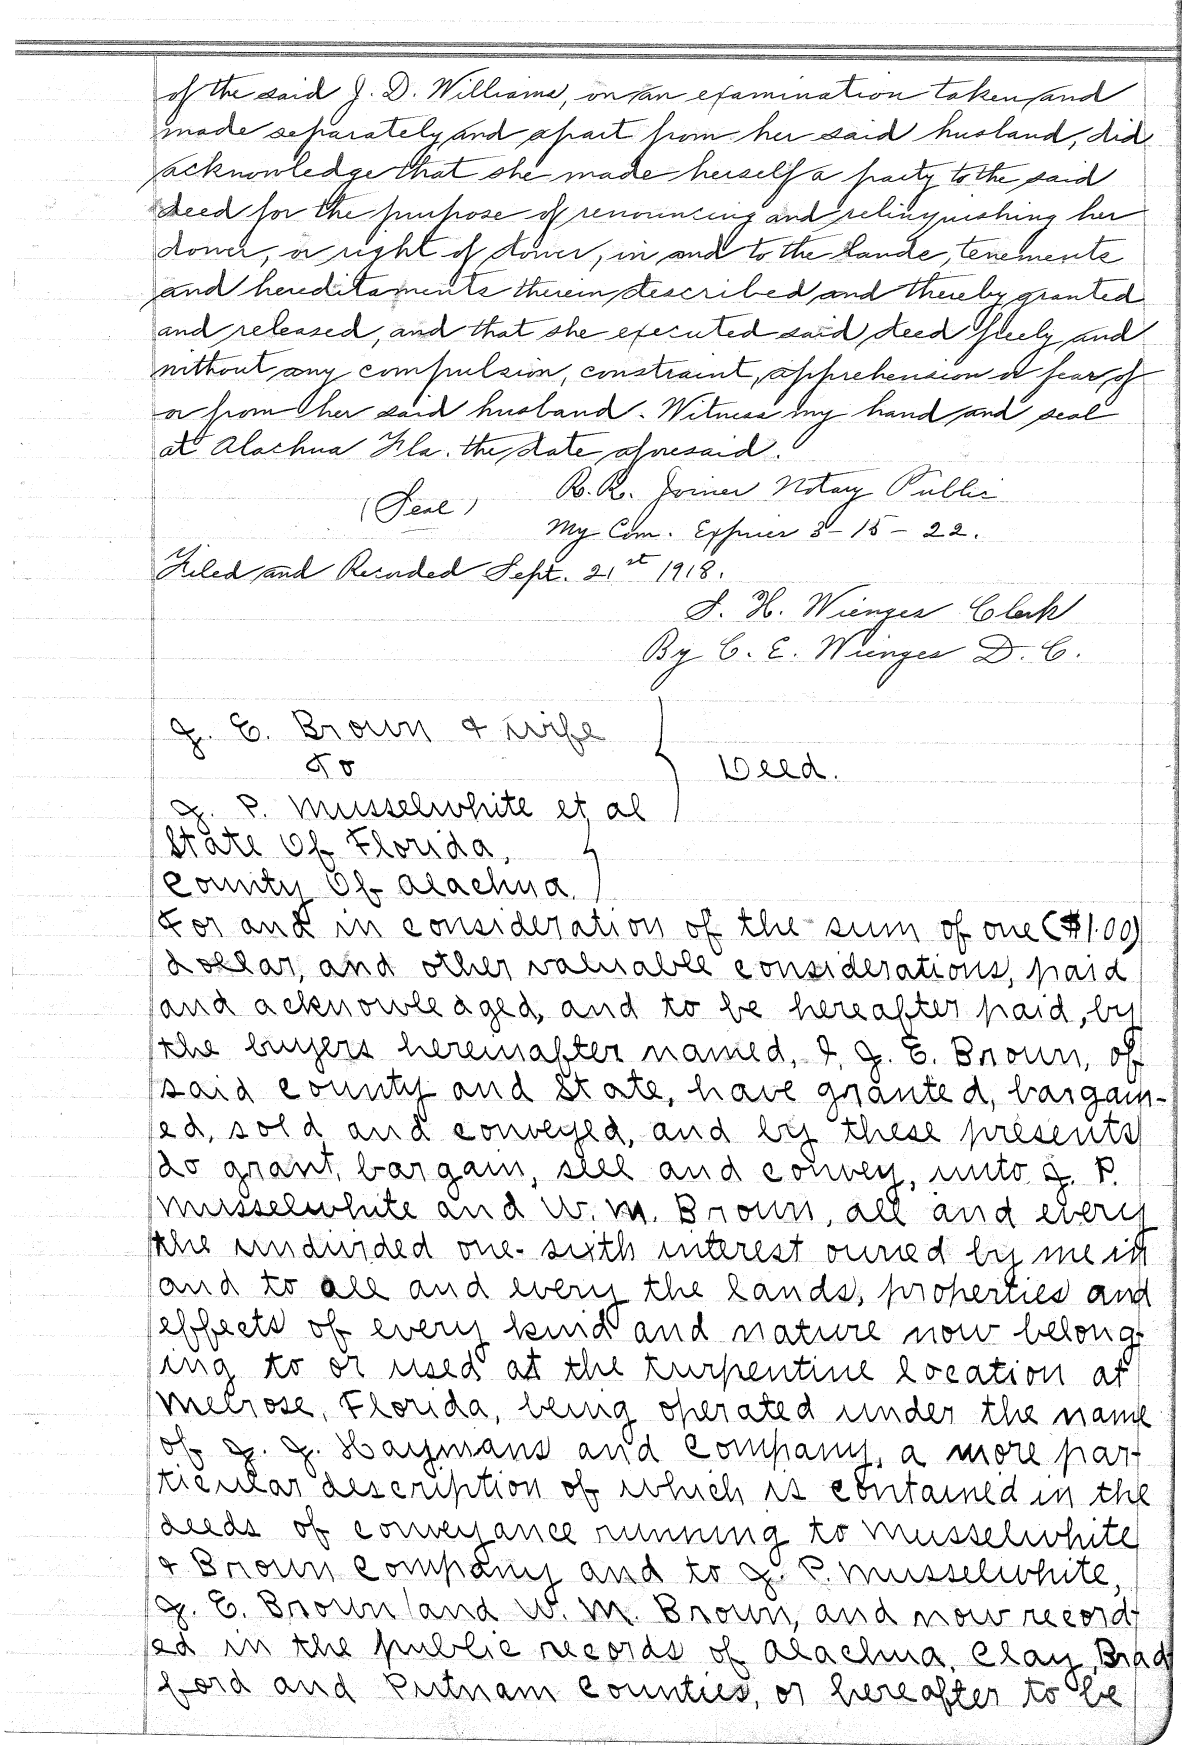 of the said J. D. Williams, on an examination taken and
made separately and apart from her said husband, did
acknowledge that she made herself a party to the said
deed for the purpose of renouncing and relinquishing her
dower, or right of dower, in and to the lands, tenements
and hereditaments therein described and thereby granted
and released, and that she executed said deed freely and
without any compulsion, constraint, apprehension or fear of
or from her said husband. Witness my hand and seal
at Alachua Fla. the date aforesaid.
R. R. Joiner Notary Public
(Seal)
My Com. Expires 3-15-22.
Filed and Recorded Sept. 21st 1918.
S. H. Wienges Clerk
By C. E. Wienges D. C.
J. E. Brown & wife
To
Deed.
J. P. Musselwhite et al
State Of Florida,
County Of Alachua.
For and in consideration of the sum of one ($1.00)
dollar, and other valuable considerations, paid
and acknowledged, and to be hereafter paid, by
the buyers hereinafter named, I, J. E. Brown, of
said County and State, have granted, bargain-
ed, sold and conveyed, and by these presents
do grant, bargain, sell and convey, unto J. P.
Musselwhite and W. M. Brown, all and every
the undivided one-sixth interest owned by me in
and to all and every the lands, properties and
effects of every kind and nature now belong-
ing to or used at the turpentine location at
Melrose, Florida, being operated under the name
of J. J. Haymans and Company, a more par-
ticular description of which is contained in the
deeds of conveyance running to Musselwhite
& Brown Company and to J. P. Musselwhite,
J. E. Brown and W. M. Brown, and now record-
ed in the public records of Alachua, Clay, Brad
ford and Putnam Counties, or hereafter to be